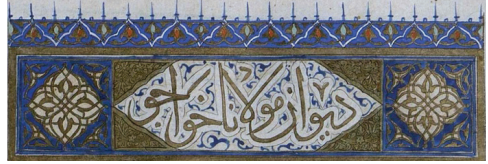 دیوان مولانا خواجو